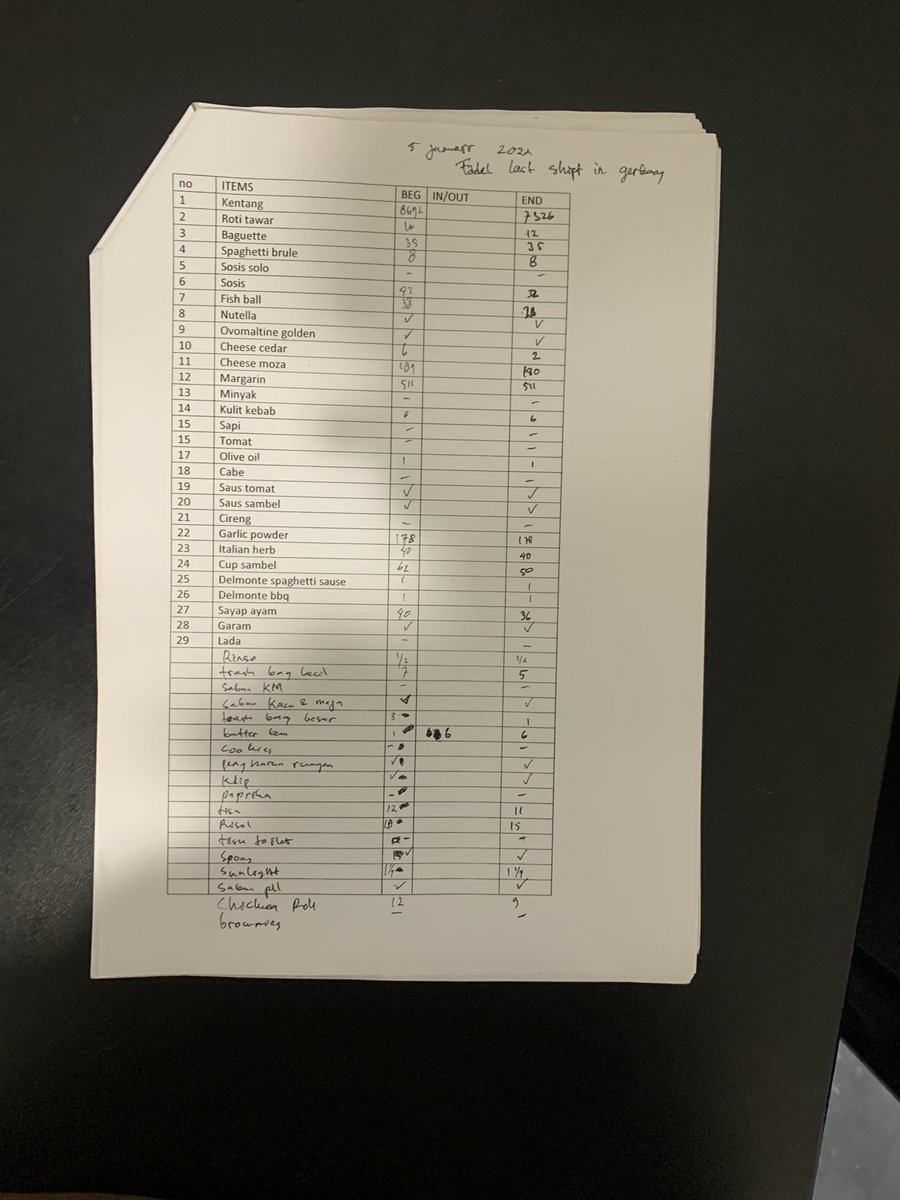 5 januari
Fadel last shift in gerbang
no ITEMS BEG IN/OUT END
1 Kentang 869 7326
2 Roti tawar 16 12
3 Baguette 35 35
4 Spaghetti brule 8 8
5 Sosis solo - -
6 Sosis 42 32
7 Fish ball 38 28
8 Nutella ✓ ✓
9 Ovomaltine golden ✓ ✓
10 Cheese cedar 6 2
11 Cheese moza 189 180
12 Margarin 511 511
13 Minyak - -
14 Kulit kebab 6 6
15 Sapi - -
15 Tomat - -
17 Olive oil 1 1
18 Cabe - -
19 Saus tomat ✓ ✓
20 Saus sambel ✓ ✓
21 Cireng - -
22 Garlic powder 178 178
23 Italian herb 40 40
24 Cup sambel 62 50
25 Delmonte spaghetti sause 1 1
26 Delmonte bbq 1 1
27 Sayap ayam 40 36
28 Garam ✓ ✓
29 Lada - -
Rinso 1/2 1/2
trash bag kecil 7 5
Sabun KM - -
Sabun kaca & meja ✓ ✓
trash bag besar 3 1
butter 1 6 6
Cookies - -
pengharum ruangan ✓ ✓
Klip ✓ ✓
paprika - -
12 11
Risol 18 15
tisu toilet - -
Spons ✓ ✓
Sunlight
Sabun pel ✓ ✓
Chicken Roll 12 9
brownies - -